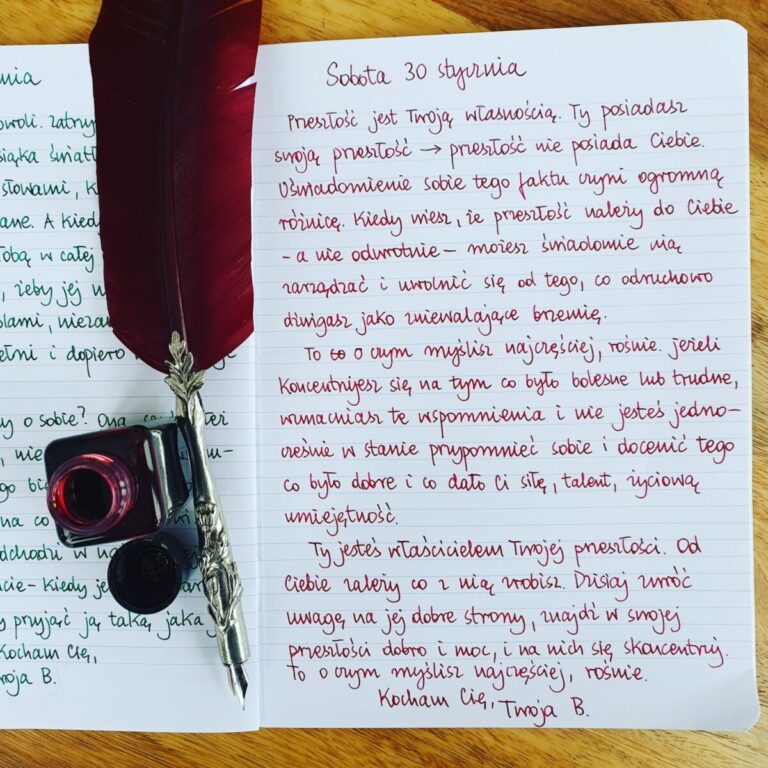 nia
owoli. Zatrzy
siąka światł
słowami, k
ane. A kied
Tobą w całej
, żeby jej w
blami, nieza
ełni i dopiero
y o sobie?
nie
go
na co
dchodzi w
cie - kiedy
y przyjąć ją taką, jaka j
Kocham Cię,
woja B.
Sobota 30 stycznia
Przeszłość jest Twoją własnością. Ty posiadasz
swoją przeszłość → przeszłość nie posiada Ciebie.
Uświadomienie sobie tego faktu czyni ogromną
różnicę. Kiedy wiesz, że przeszłość należy do Ciebie
- a nie odwrotnie - możesz świadomie nią
zarządzać i uwolnić się od tego, co odruchowo
dźwigasz jako zniewalające brzemię.
To co o czym myślisz najczęściej, rośnie. Jeżeli
koncentrujesz się na tym co było bolesne lub trudne,
wzmacniasz te wspomnienia i nie jesteś jedno-
cześnie w stanie przypomnieć sobie i docenić tego
co było dobre i co dało Ci siłę, talent, życiową
umiejętność.
Ty jesteś właścicielem Twojej przeszłości. Od
Ciebie zależy co z nią zrobisz. Dzisiaj zwróć
uwagę na jej dobre strony, znajdź w swojej
przeszłości dobro i moc, i na nich się skoncentruj.
To o czym myślisz najczęściej, rośnie.
Kocham Cię, Twoja B.